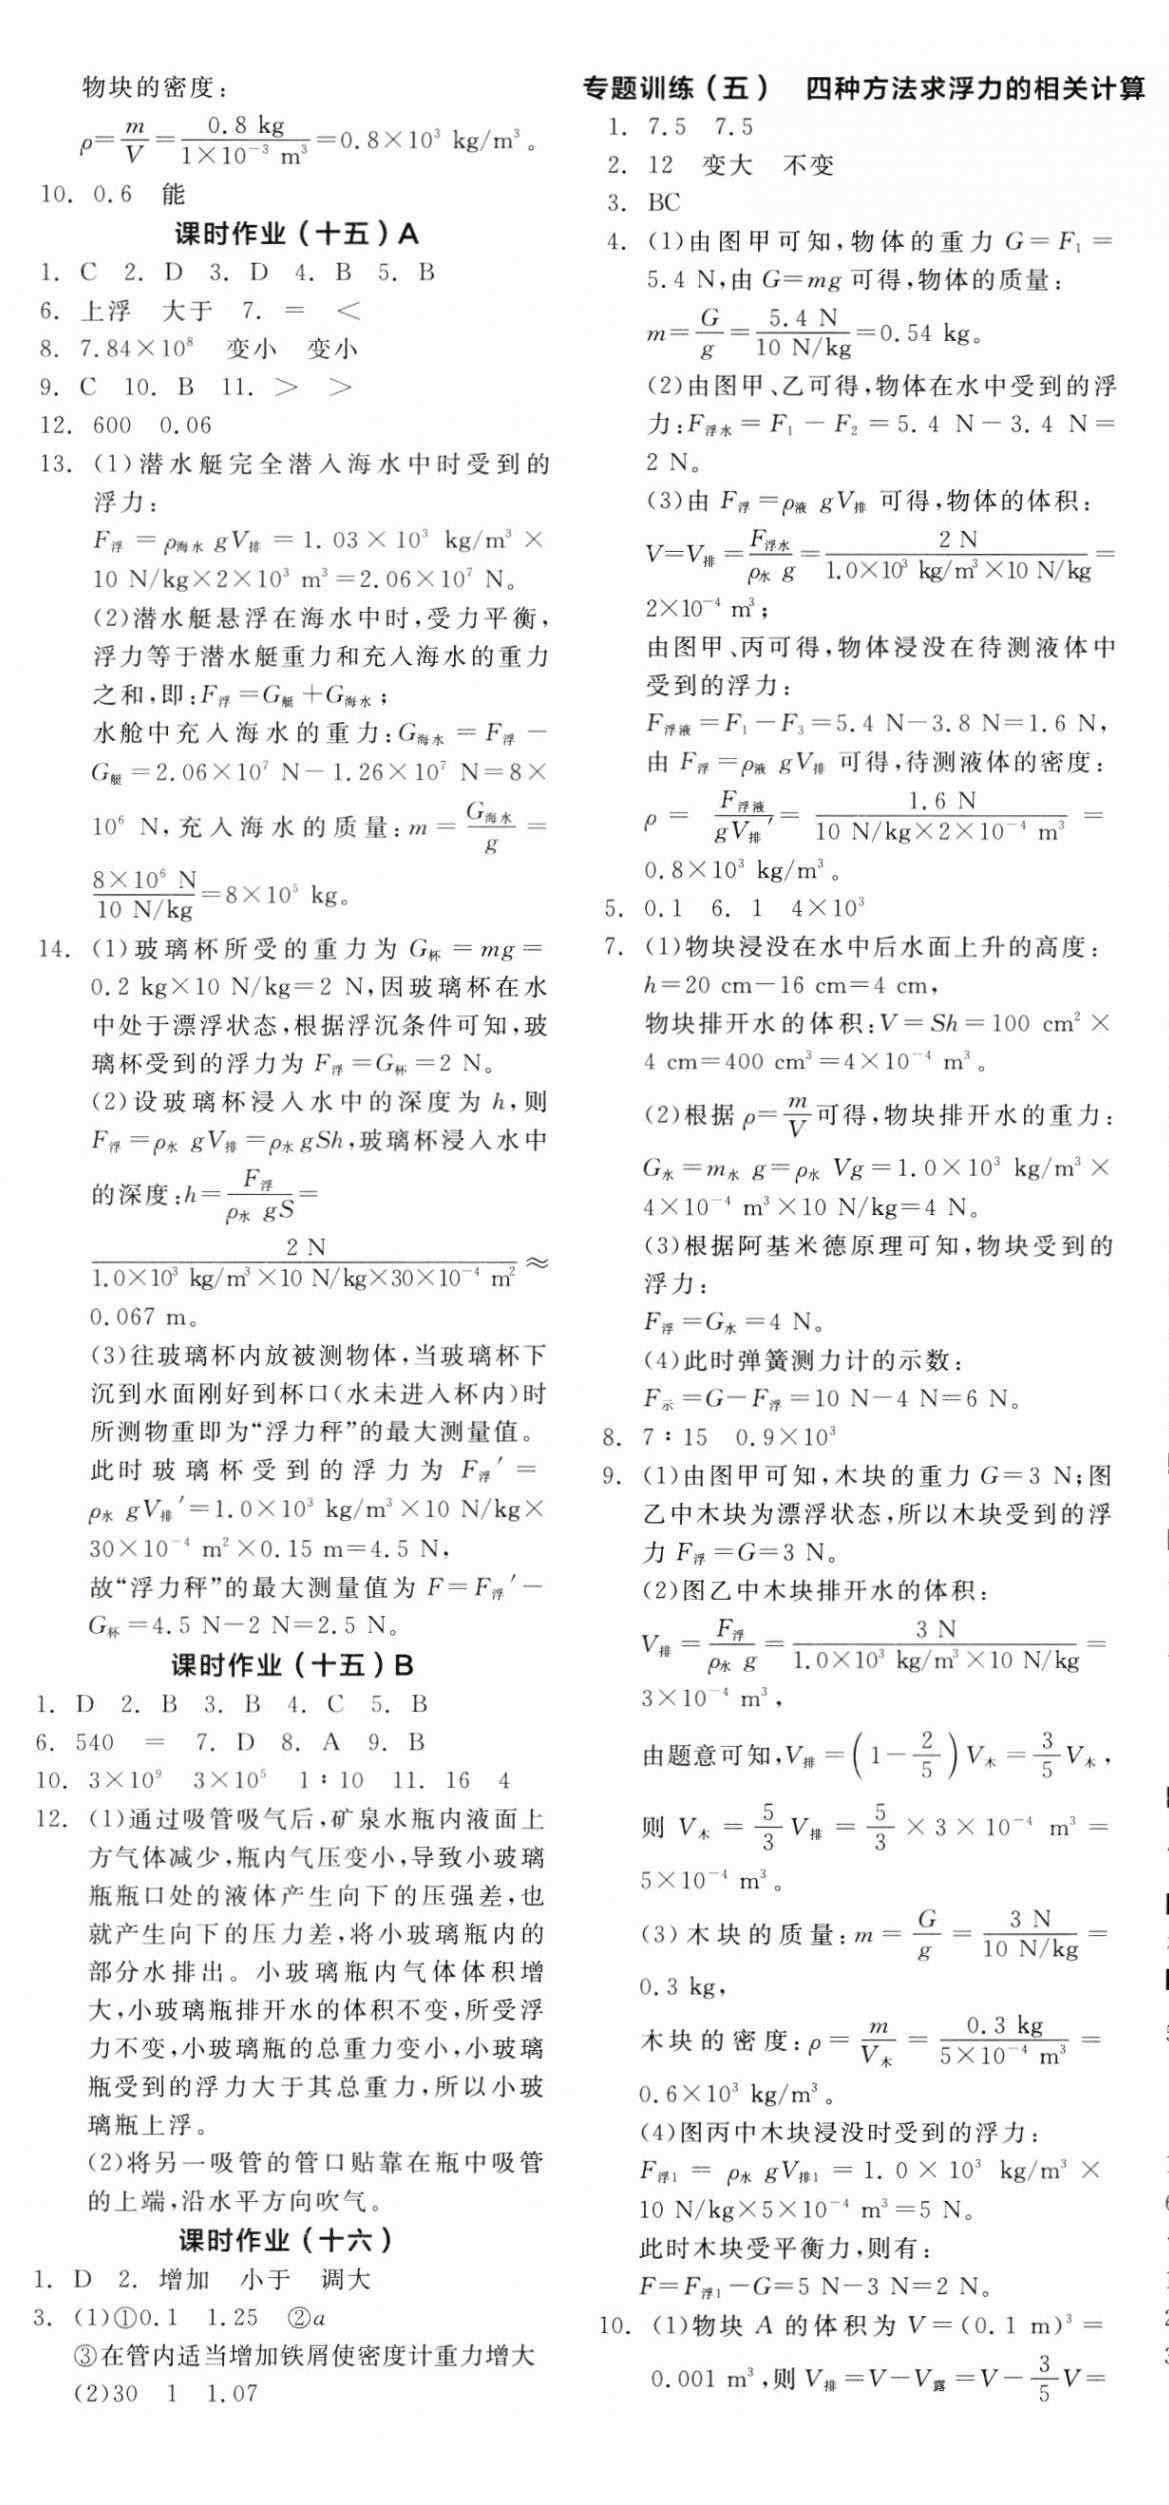 物块的密度:
ρ=m/V=0.8 kg/(1×10⁻³ m³)=0.8×10³ kg/m³。
10. 0.6 能
课时作业(十五)A
1. C 2. D 3. D 4. B 5. B
6. 上浮 大于 7. = <
8. 7.84×10⁸ 变小 变小
9. C 10. B 11. > >
12. 600 0.06
13. (1)潜水艇完全潜入海水中时受到的
浮力:
F浮=ρ海水 gV排=1.03×10³ kg/m³×
10 N/kg×2×10³ m³=2.06×10⁷ N。
(2)潜水艇悬浮在海水中时,受力平衡,
浮力等于潜水艇重力和充入海水的重力
之和,即:F浮=G艇+G海水;
水舱中充入海水的重力:G海水=F浮-
G艇=2.06×10⁷ N-1.26×10⁷ N=8×
10⁶ N,充入海水的质量:m=G海水/g=
8×10⁶ N/(10 N/kg)=8×10⁵ kg。
14. (1)玻璃杯所受的重力为 G杯=mg=
0.2 kg×10 N/kg=2 N,因玻璃杯在水
中处于漂浮状态,根据浮沉条件可知,玻
璃杯受到的浮力为 F浮=G杯=2 N。
(2)设玻璃杯浸入水中的深度为 h,则
F浮=ρ水 gV排=ρ水 gSh,玻璃杯浸入水中
的深度:h=F浮/(ρ水 gS)=
2 N/(1.0×10³ kg/m³×10 N/kg×30×10⁻⁴ m²)≈
0.067 m。
(3)往玻璃杯内放被测物体,当玻璃杯下
沉到水面刚好到杯口(水未进入杯内)时
所测物重即为“浮力秤”的最大测量值。
此时玻璃杯受到的浮力为 F浮′=
ρ水 gV排′=1.0×10³ kg/m³×10 N/kg×
30×10⁻⁴ m²×0.15 m=4.5 N,
故“浮力秤”的最大测量值为 F=F浮′-
G杯=4.5 N-2 N=2.5 N。
课时作业(十五)B
1. D 2. B 3. B 4. C 5. B
6. 540 = 7. D 8. A 9. B
10. 3×10⁹ 3×10⁵ 1∶10 11. 16 4
12. (1)通过吸管吸气后,矿泉水瓶内液面上
方气体减少,瓶内气压变小,导致小玻璃
瓶瓶口处的液体产生向下的压强差,也
就产生向下的压力差,将小玻璃瓶内的
部分水排出。小玻璃瓶内气体体积增
大,小玻璃瓶排开水的体积不变,所受浮
力不变,小玻璃瓶的总重力变小,小玻璃
瓶受到的浮力大于其总重力,所以小玻
璃瓶上浮。
(2)将另一吸管的管口贴靠在瓶中吸管
的上端,沿水平方向吹气。
课时作业(十六)
1. D 2. 增加 小于 调大
3. (1)①0.1 1.25 ②a
③在管内适当增加铁屑使密度计重力增大
(2)30 1 1.07
专题训练(五) 四种方法求浮力的相关计算
1. 7.5 7.5
2. 12 变大 不变
3. BC
4. (1)由图甲可知,物体的重力 G=F₁=
5.4 N,由 G=mg 可得,物体的质量:
m=G/g=5.4 N/(10 N/kg)=0.54 kg。
(2)由图甲、乙可得,物体在水中受到的浮
力:F浮水=F₁-F₂=5.4 N-3.4 N=
2 N。
(3)由 F浮=ρ液 gV排 可得,物体的体积:
V=V排=F浮水/(ρ水 g)=2 N/(1.0×10³ kg/m³×10 N/kg)=
2×10⁻⁴ m³;
由图甲、丙可得,物体浸没在待测液体中
受到的浮力:
F浮液=F₁-F₃=5.4 N-3.8 N=1.6 N,
由 F浮=ρ液 gV排 可得,待测液体的密度:
ρ=F浮液/(gV排′)=1.6 N/(10 N/kg×2×10⁻⁴ m³)=
0.8×10³ kg/m³。
5. 0.1 6. 1 4×10³
7. (1)物块浸没在水中后水面上升的高度:
h=20 cm-16 cm=4 cm,
物块排开水的体积:V=Sh=100 cm²×
4 cm=400 cm³=4×10⁻⁴ m³。
(2)根据 ρ=m/V可得,物块排开水的重力:
G水=m水 g=ρ水 Vg=1.0×10³ kg/m³×
4×10⁻⁴ m³×10 N/kg=4 N。
(3)根据阿基米德原理可知,物块受到的
浮力:
F浮=G水=4 N。
(4)此时弹簧测力计的示数:
F示=G-F浮=10 N-4 N=6 N。
8. 7∶15 0.9×10³
9. (1)由图甲可知,木块的重力 G=3 N;图
乙中木块为漂浮状态,所以木块受到的浮
力 F浮=G=3 N。
(2)图乙中木块排开水的体积:
V排=F浮/(ρ水 g)=3 N/(1.0×10³ kg/m³×10 N/kg)=
3×10⁻⁴ m³,
由题意可知,V排=(1-2/5)V木=3/5V木,
则 V木=5/3V排=5/3×3×10⁻⁴ m³=
5×10⁻⁴ m³。
(3)木块的质量:m=G/g=3 N/(10 N/kg)=
0.3 kg,
木块的密度:ρ=m/V木=0.3 kg/(5×10⁻⁴ m³)=
0.6×10³ kg/m³。
(4)图丙中木块浸没时受到的浮力:
F浮1=ρ水 gV排1=1.0×10³ kg/m³×
10 N/kg×5×10⁻⁴ m³=5 N。
此时木块受平衡力,则有:
F=F浮1-G=5 N-3 N=2 N。
10. (1)物块 A 的体积为 V=(0.1 m)³=
0.001 m³,则 V排=V-V露=V-3/5V=